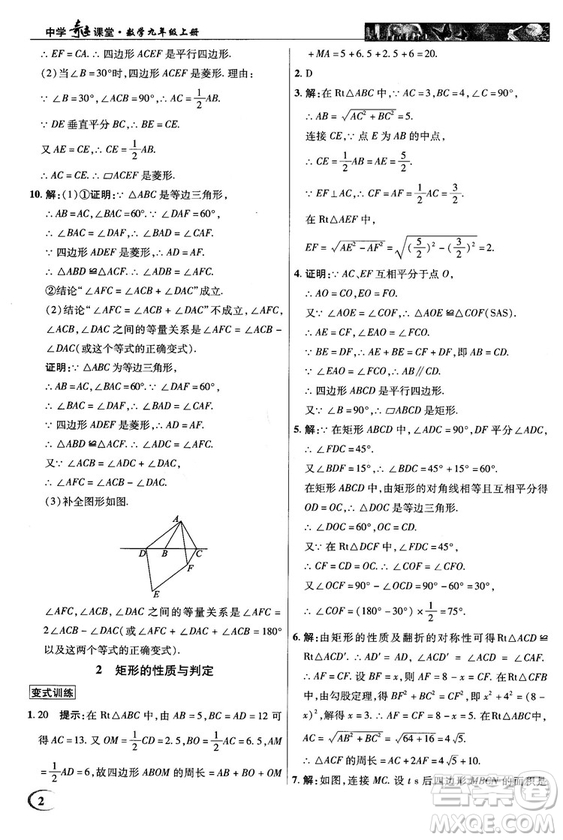 中学奇迹课堂·数学九年级上册
∴ EF=CA. ∴ 四边形 ACEF 是平行四边形.
(2)当∠B=30°时,四边形 ACEF 是菱形. 理由:
∵ ∠B=30°,∠ACB=90°,∴ AC=1/2AB.
∵ DE 垂直平分 BC,∴ BE=CE.
又∵ AE=CE,∴ CE=1/2AB.
∴ AC=CE. ∴ ▱ACEF 是菱形.
10. 解:(1)①证明:∵ △ABC 是等边三角形,
∴ AB=AC,∠BAC=60°,∵ ∠DAF=60°,
∴ ∠BAC=∠DAF. ∴ ∠BAD=∠CAF.
∵ 四边形 ADEF 是菱形,∴ AD=AF.
∴ △ABD≌△ACF. ∴ ∠ADB=∠AFC.
②结论“∠AFC=∠ACB+∠DAC”成立.
(2)结论“∠AFC=∠ACB+∠DAC”不成立,∠AFC,
∠ACB,∠DAC 之间的等量关系是∠AFC=∠ACB
-∠DAC(或这个等式的正确变式).
证明:∵ △ABC 为等边三角形,
∴ AB=AC,∠BAC=60°,∵ ∠DAF=60°,
∴ ∠BAC=∠DAF. ∴ ∠BAD=∠CAF.
∵ 四边形 ADEF 是菱形,∴ AD=AF.
∴ △ABD≌△ACF. ∴ ∠ADB=∠AFC.
又∵ ∠ACB=∠ADC+∠DAC,
∴ ∠AFC=∠ACB-∠DAC.
(3)补全图形如图.
A
D B C
F
E
∠AFC,∠ACB,∠DAC 之间的等量关系是
∠AFC+∠DAC+∠ACB=180°
以及这两个等式的正确变式).
2 矩形的性质与判定
变式训练
1. 20 提示:在 Rt△ABC 中,AB=5,AD=12 可
求得 AC=13. 又 OM=1/2CD=2.5,BO=1/2AC=6.5,
AM=1/2AD=6,故四边形 ABOM 的周长=AB+BO+OM
2
+MA=5+6.5+2.5+6=20.
2. D
3. 解:在 Rt△ABC 中,∵ AC=3,BC=4,∠C=90°,
∴ AB=√(AC²+BC²)=5.
连接 CE,∵ 点 E 为 AB 的中点,
∴ CE=1/2AB=1/2×5=5/2.
∵ EF⊥AC,∴ AF=CF=1/2AC=3/2.
∴ 在 Rt△AEF 中,
EF=√(AE²-AF²)=√((5/2)²-(3/2)²)=2.
4. 证明:∵ AC、EF 互相平分于点 O,
∴ AO=CO,OE=OF.
又∵ ∠AOE=∠COF,∴ △AOE≌△COF(SAS).
∴ AE=CF,∠EAO=∠FCO.
∵ BE=DF,∴ BE+AE=DF+CF,即 AB=CD.
∵ ∠EAO=∠FCO,∴ AB∥CD.
∴ 四边形 ABCD 是平行四边形.
又∵ ∠B=90°,∴ ▱ABCD 是矩形.
5. 解:∵ 在矩形 ABCD 中,∠ADC=90°,DF 平分∠ADC,
∴ ∠FDC=45°.
又∵ ∠BDF=15°,∴ ∠BDC=45°+15°=60°.
在矩形 ABCD 中,矩形的对角线相等且平分,故 OD=OC.
∴ △OCD 是等边三角形.
∴ ∠DOC=∠OCD=60°,OC=CD.
又∵ 在 Rt△DCF 中,∠CFD=90°-45°=45°,
∴ CF=CD=OC. ∴ ∠COF=∠CFO.
又∵ ∠OCF=90°-∠OCD=90°-60°=30°,
∴ ∠COF=(180°-30°)×1/2=75°.
6. 解:由矩形的性质及翻折的对称性可得 Rt△ABF≌
Rt△AD′E. ∴ AF=AE. ∵ AD′=CD,AD′=AB,
∴ AB=CD=8. 则 AF=8-BF=6. 在 Rt△CBF 中,
由勾股定理,得 BF²+BC²=CF²,得 BC=4,
AC=√(AB²+BC²)=√(64+16)=4√5.
7. 解:如图,连接 MC. 设 t s 后四边形 MBCN 的面积是